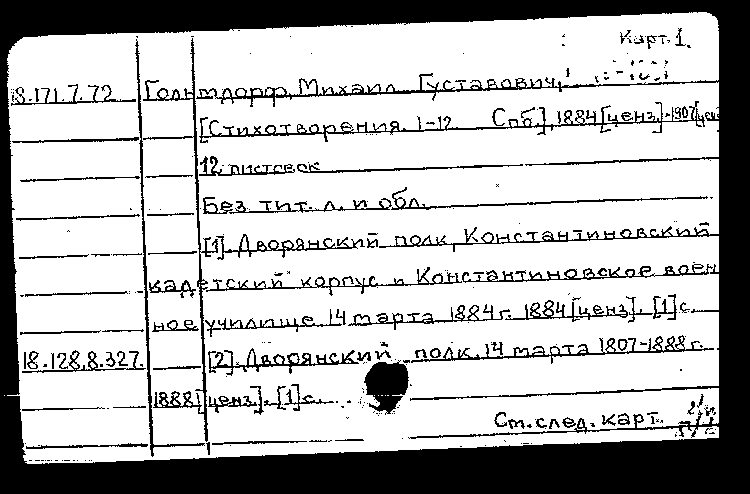 Карт. 1.
18.171.7.72 Гольтдорф, Михаил Густавович,
[Стихотворения. 1-12 Спб.], 1884 [ценз.]-1907 [ценз.]
12 листовок
Без тит. л. и обл.
[1]. Дворянский полк, Константиновский
кадетский корпус и Константиновское воен
ное училище. 14 марта 1884 г. 1884 [ценз]. [1] с.
18.128.8.327. [2]. Дворянский полк. 14 марта 1807-1888 г.
1888 [ценз]. [1] с.
См. след. карт.